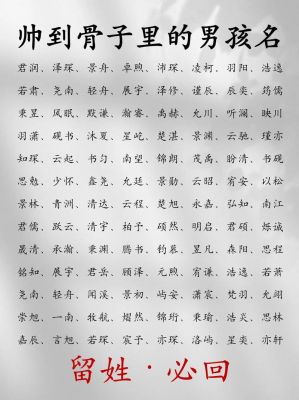 帅到骨子里的男孩名
君润、泽琛、景舟、卓煦、沛琛、凌柯、羽阳、浩逸
若肃、尧南、轻舟、展宇、泽修、谨辰、辰奕、筠儒
秉昱、风眠、默谦、瀚睿、禹赫、允川、听澜、映川
羽萧、砚书、沐夏、星屹、楚湛、景渊、云驰、瑾亦
知琛、云起、书匀、南望、锦朗、茂禹、盼清、书砚
思勉、少怀、鑫尧、允廷、景勋、云昭、宥安、以松
景林、青洲、清达、云程、楚旭、永嘉、弘知、南江
君儒、跃云、清宇、柏予、硕然、明启、君硕、烁诚
晟清、承瀚、秉渊、腾书、钧慕、昱凡、森阳、思程
铭知、展宇、君岳、顾泽、元煦、宥谦、浩逸、若萧
尧南、轻舟、闻溪、景初、屿安、潇宸、梵羽、允翊
崇旭、一南、牧航、熠然、锦珩、秉瑜、浩炎、思林
嘉辰、言旭、若琛、宸予、亦琛、洛屿、星奕、亦轩
留姓·必回